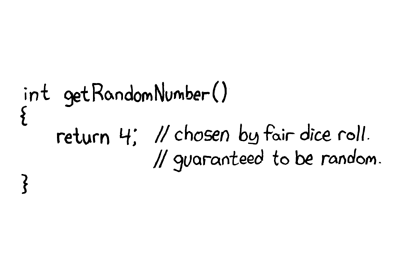 int getRandomNumber()
{
return 4; // chosen by fair dice roll.
// guaranteed to be random.
}